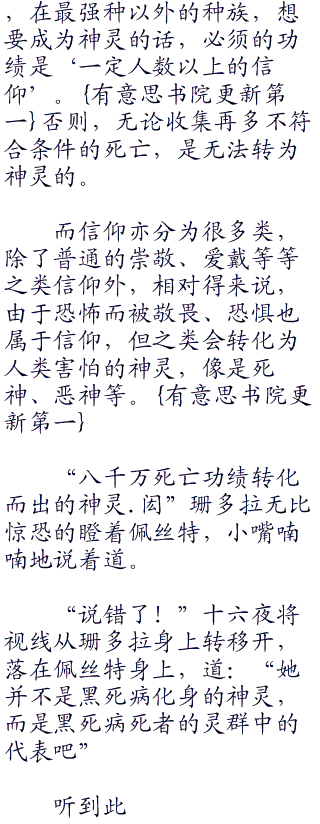 ，在最强种以外的种族，想
要成为神灵的话，必须的功
绩是‘一定人数以上的信
仰’。{有意思书院更新第
一}否则，无论收集再多不符
合条件的死亡，是无法转为
神灵的。
而信仰亦分为很多类，
除了普通的崇敬、爱戴等等
之类信仰外，相对得来说，
由于恐怖而被敬畏、恐惧也
属于信仰，但之类会转化为
人类害怕的神灵，像是死
神、恶神等。{有意思书院更
新第一}
“八千万死亡功绩转化
而出的神灵.闳”珊多拉无比
惊恐的瞪着佩丝特，小嘴喃
喃地说着道。
“说错了！”十六夜将
视线从珊多拉身上转移开，
落在佩丝特身上，道：“她
并不是黑死病化身的神灵，
而是黑死病死者的灵群中的
代表吧”
听到此